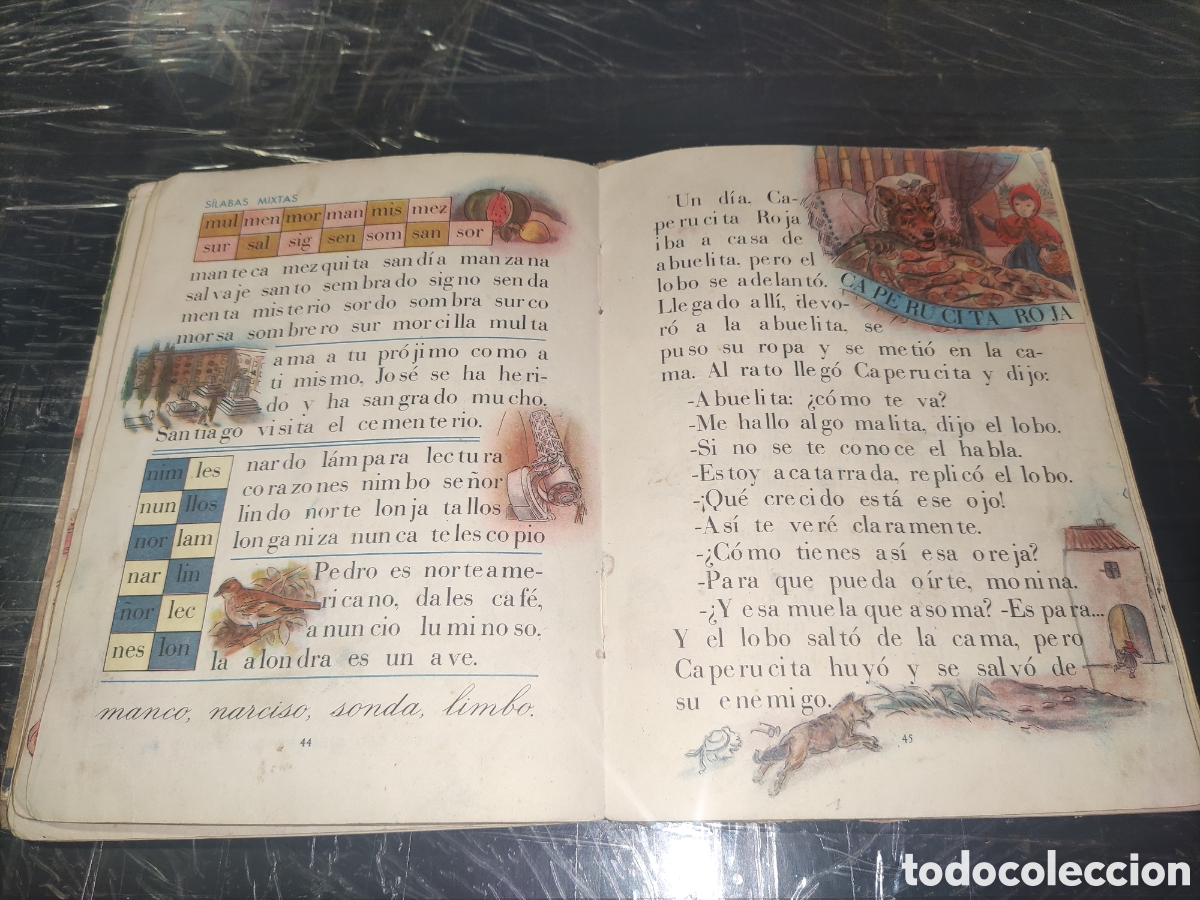 SÍLABAS MIXTAS
mul men mor man mis mez
sur sal sig sen som san sor
manteca mezquita sandía manzana
salvaje santo sembrado signo senda
menta misterio sordo sombra surco
morsa sombrero sur morcilla multa
ama a tu prójimo como a
ti mismo, José se ha heri-
do y ha sangrado mucho.
Santiago visita el cementerio.
nim les
nun llos
nor lam
nar lin
ñor lec
nes lon
nardo lámpara lectura
corazones nimbo señor
lindo norte lonja tallos
longaniza nunca telescopio
Pedro es norteame-
ricano, dales café,
anuncio luminoso,
la alondra es un ave.
manco, narciso, sonda, limbo.
44
CAPERUCITA ROJA
Un día, Ca-
perucita Roja
iba a casa de
abuelita, pero el
lobo se adelantó.
Llegado allí, devo-
ró a la abuelita, se
puso su ropa y se metió en la ca-
ma. Al rato llegó Caperucita y dijo:
-Abuelita: ¿cómo te va?
-Me hallo algo malita, dijo el lobo.
-Si no se te conoce el habla.
-Estoy acatarrada, replicó el lobo.
-¡Qué crecido está ese ojo!
-Así te veré claramente.
-¿Cómo tienes así esa oreja?
-Para que pueda oírte, monina.
-¿Y esa muela que asoma? -Es para...
Y el lobo saltó de la cama, pero
Caperucita huyó y se salvó de
su enemigo.
45
todocoleccion